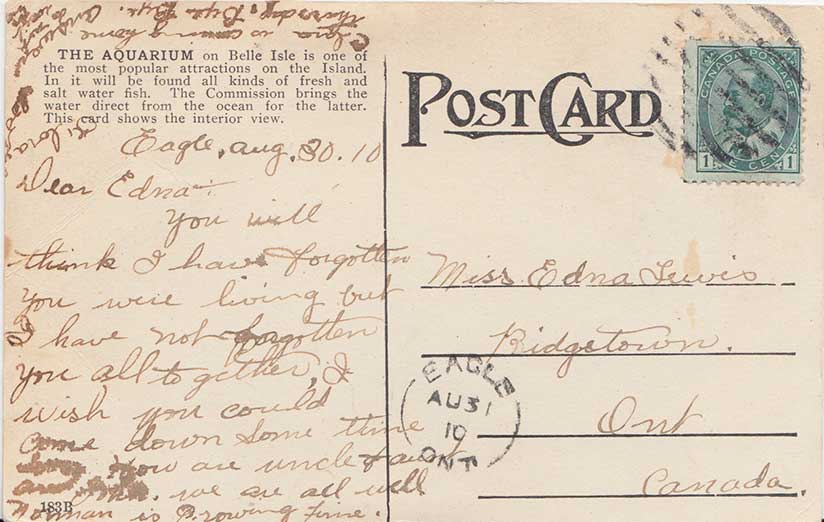 Clara is coming home
Thursday. Bye Bye.
THE AQUARIUM on Belle Isle is one of
the most popular attractions on the Island.
In it will be found all kinds of fresh and
salt water fish. The Commission brings the
water direct from the ocean for the latter.
This card shows the interior view.
Eagle, Aug. 30. 10
Dear Edna
You will
think I have forgotten
you were living but
I have not forgotten
you all to gether, I
wish you could
come down some time
how are uncle & aunt
we are all well
Norman is growing fine.
183B
POST CARD
CANADA POSTAGE
1 ONE CENT 1
Miss Edna Lewis
Ridgetown.
Ont
Canada.
EAGLE
AU 31
10
ONT